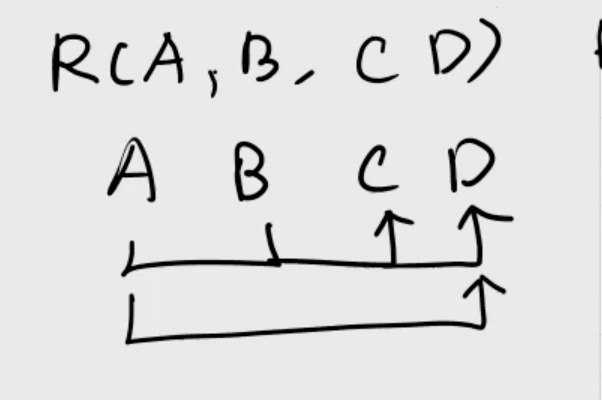 R(A, B, C D)
A B C D